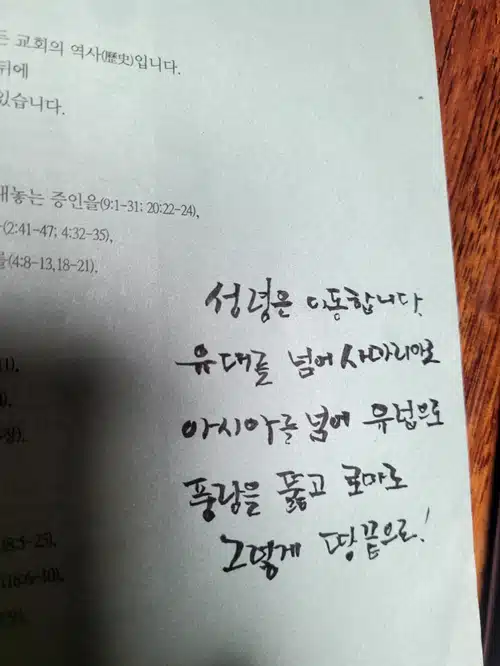 든 교회의 역사(歷史)입니다.
뒤에
있습니다.
내놓는 증인을(9:1-31; 20:22-24),
(2:41-47; 4:32-35),
를(4:8-13,18-21).
성령은 이동합니다.
유대를 넘어 사마리아로
아시아를 넘어 유럽으로
풍랑을 뚫고 로마로
그렇게 땅끝으로!
(8:5-25),
(16:6-10),